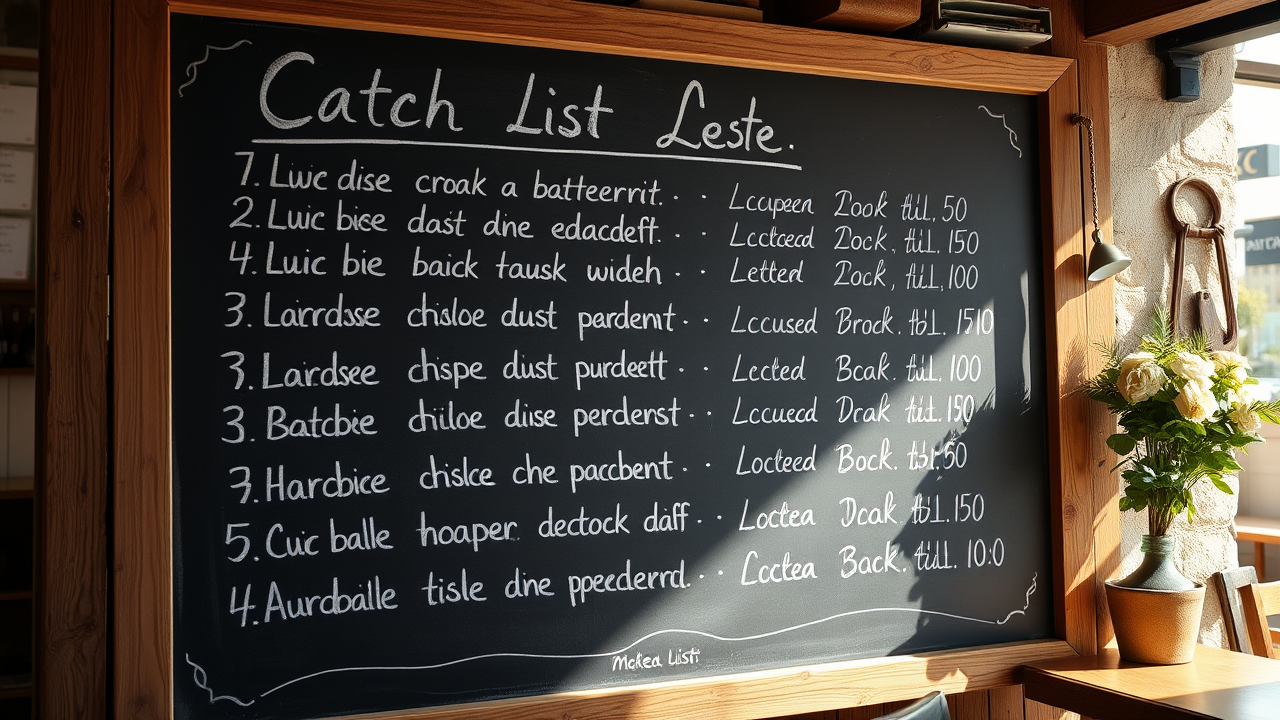 Catch List Leste.
7. Luic dise croak a batteerrit. . . Lccupeen Dook tlil. 50
2. Luic bice dast dne edacdeft. . . Lcctced Dock, til. 150
4. Luic bie baick tausk wideh . . Letted Dock, til, 100
3. Lairrdsse chisloe dust pardennt . . Lccused Brock. tbl. 1510
3. Lairdsee chispe duist purdeett . . Lccted Bcak. til. 100
3. Batcbie chiloe diise perdenst . . Lccuecd Drak tit. 150
3. Hardbice chislce che paccbent . . Locteed Bock. tbl. 50
5. Cuic balle hoaper. dectock daff . . Loctea Dcak. tbl. 150
4. Aurdballe tisle dne ppeederrd. . . Lcctea Back. tidl. 10:0
Mctea List